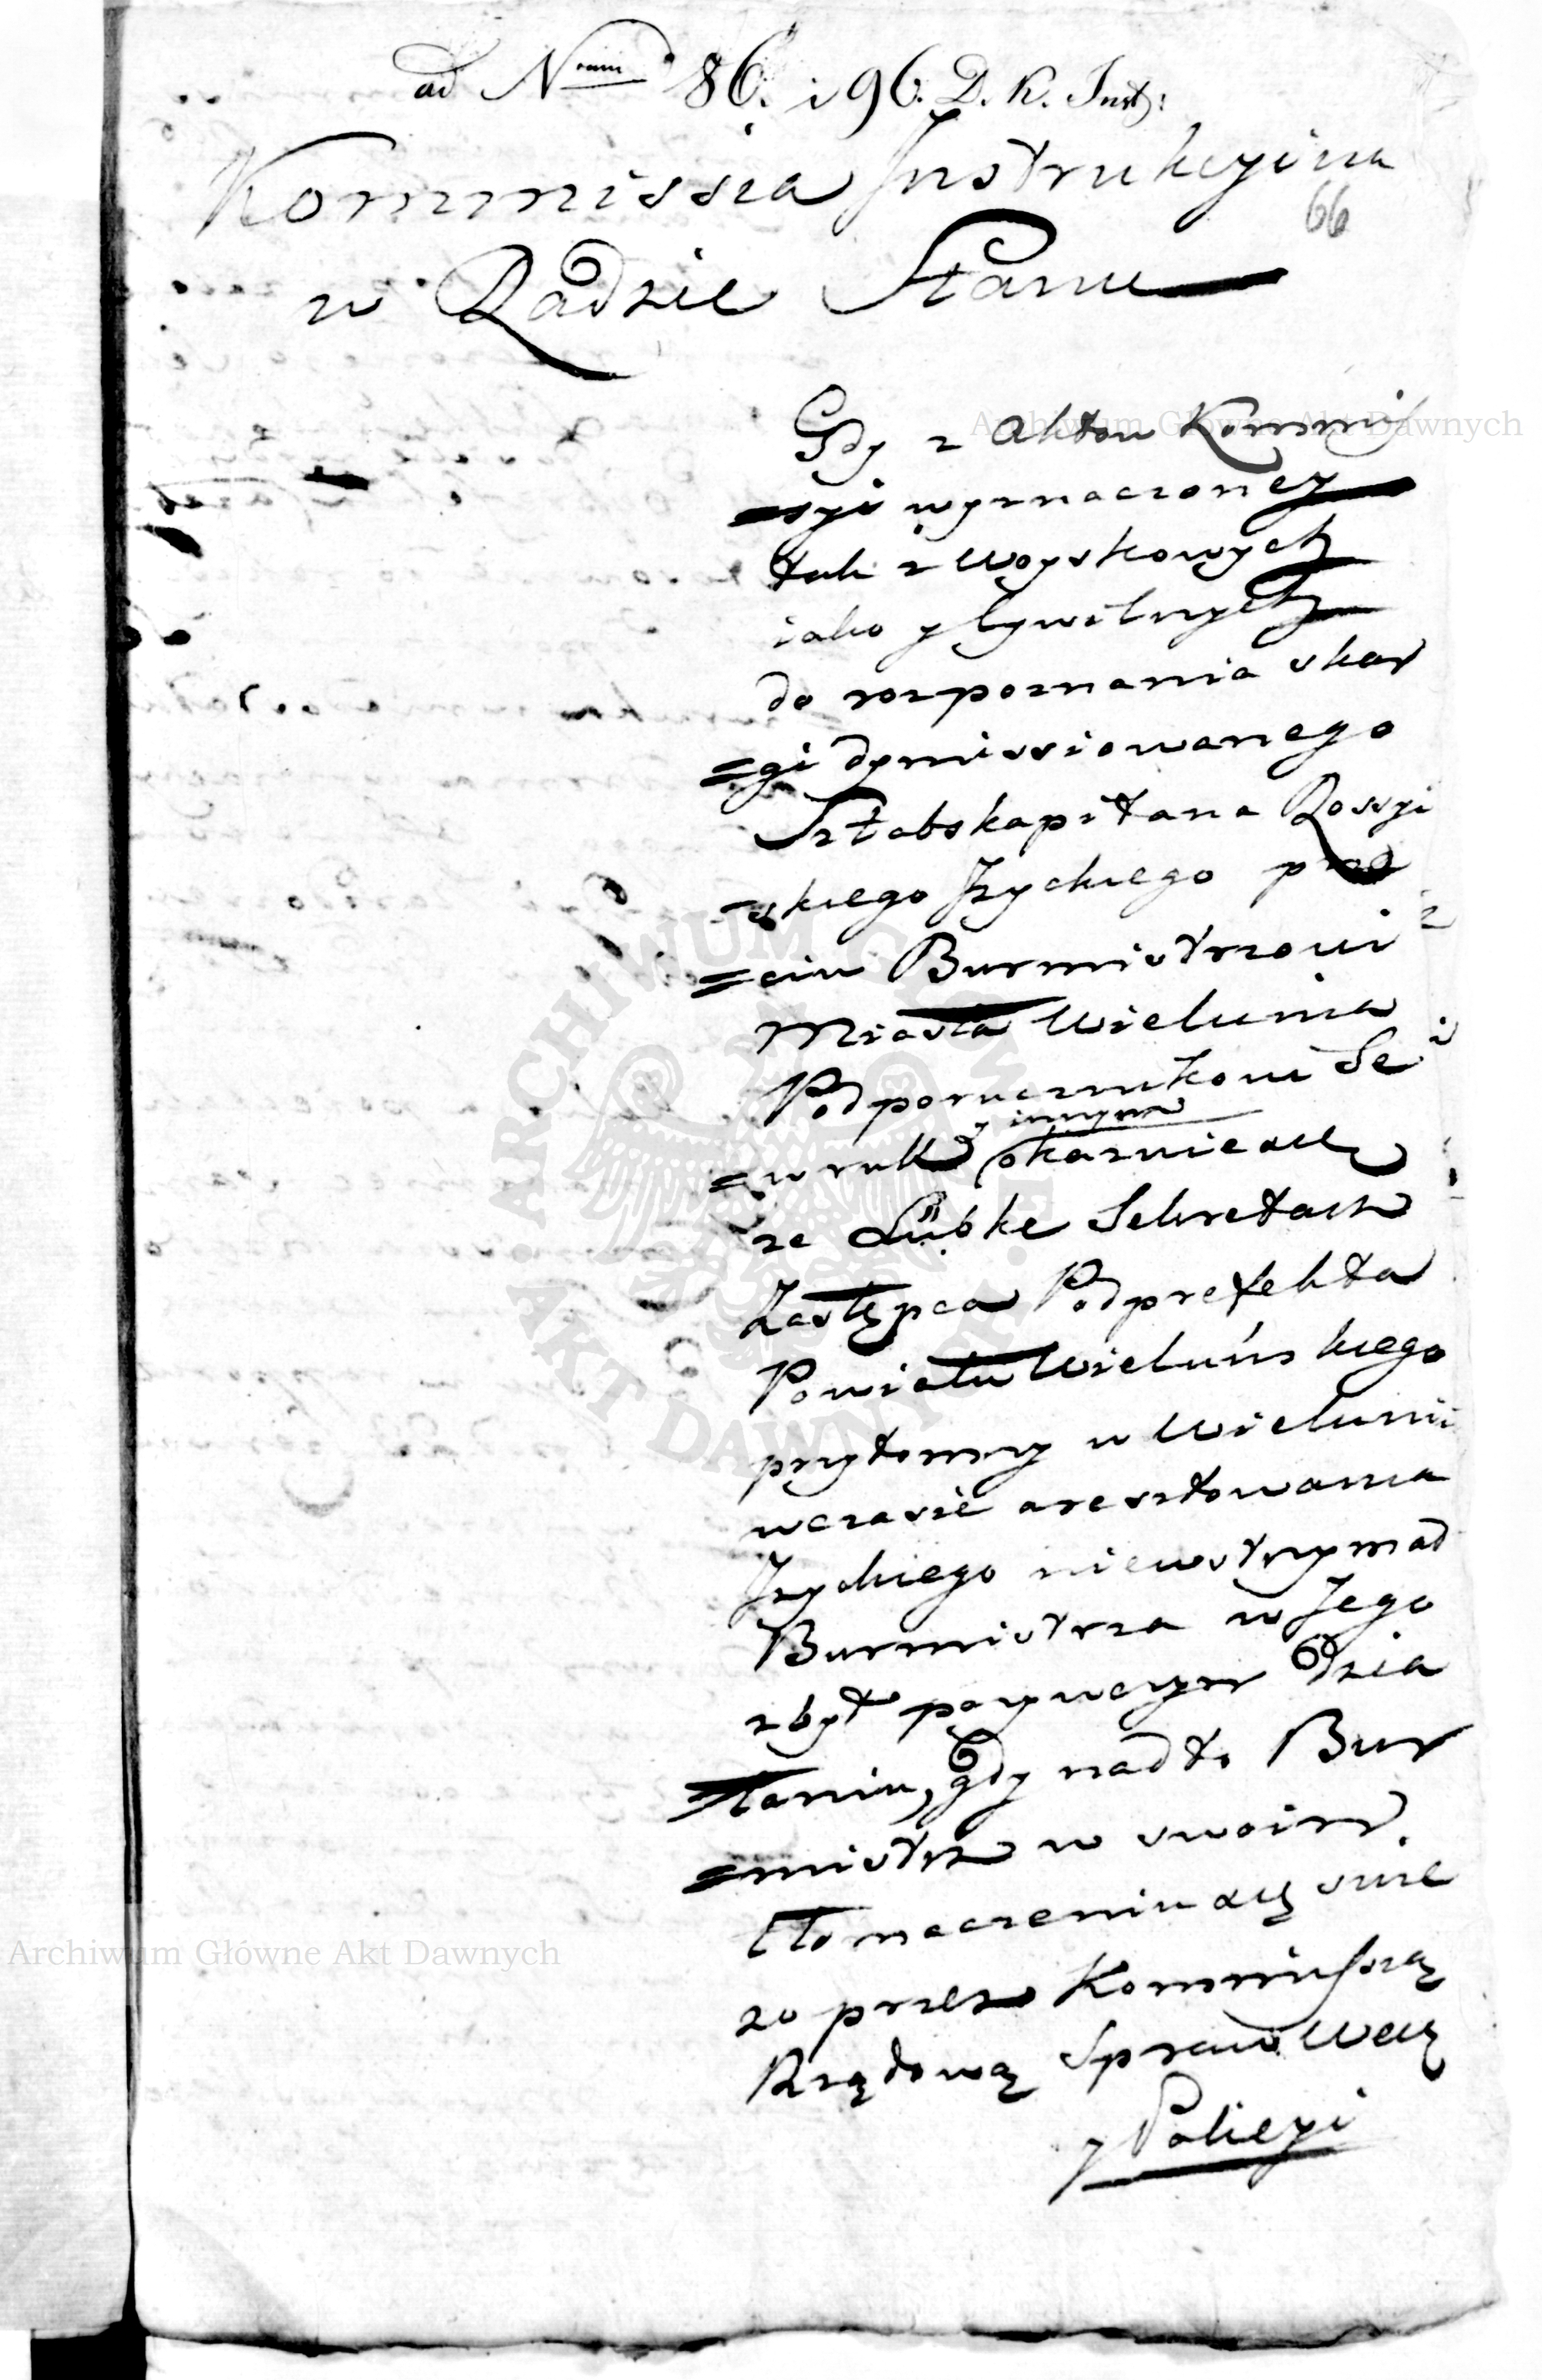 ad N<sup>rum</sup> 86. i 96. D. K. Inst:
Kommissia Instrukcyina
66
w Radzie Stanu
Gdy z Aktow Kommis
=syi wyznaczoney
tak z Woyskowych
iako y Cywilnych
do rozpoznania skar
=gi dymissiowanego
Sztabskapitana Rossyi
=skiego Jzyckiego prze
=ciw Burmistrzowi
Miasta Wielunia
Podporucznikowi Se
y innym
=wruk okazuie się
że Lübke Sekretarz
Zastępca Podprefekta
Powiatu Wieluńskiego
przytomny w Wieluniu
wczasie aresztowania
Jzyckiego niewstrzymał
Burmistrza w Jego
zbyt porywczym dzia
=łaniu, gdy nadto Bur
=mistrz w swoim
tłomaczeniu się wnie
zo przez Kommissią
Rządową Spraw Wew
y Policyi
Archiwum Główne Akt Dawnych
Archiwum Główne Akt Dawnych
ARCHIWUM GŁÓWNE · AKT DAWNYCH ·